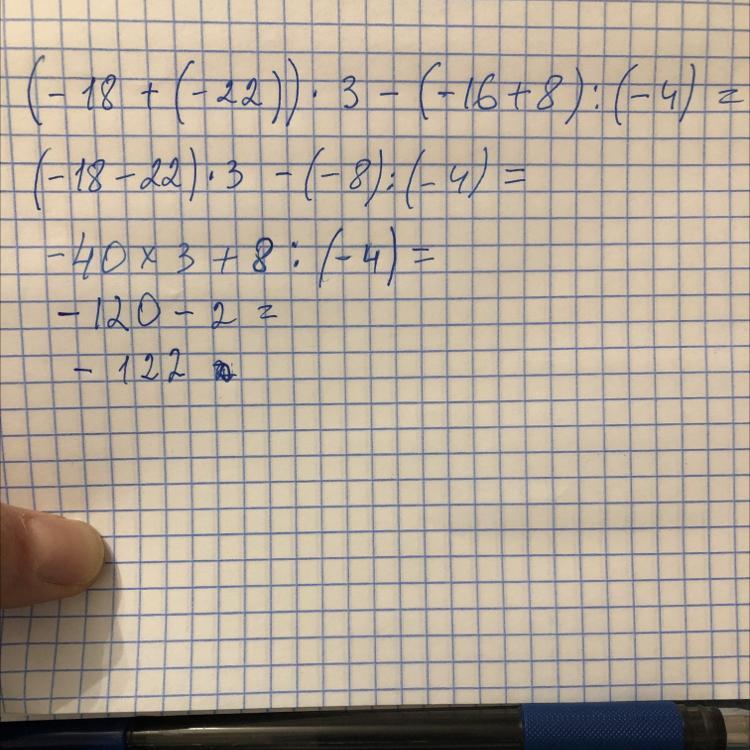 (-18 + (-22)) · 3 - (-16 + 8) : (-4) =
(-18 - 22) · 3 - (-8) : (-4) =
-40 × 3 + 8 : (-4) =
-120 - 2 =
-122